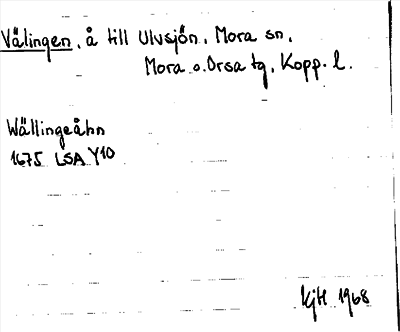 Välingen, å till Ulvsjön, Mora sn,
Mora o. Orsa tg, Kopp. l.
Wällingeåhn
1675 LSA Y10
KjH 1968